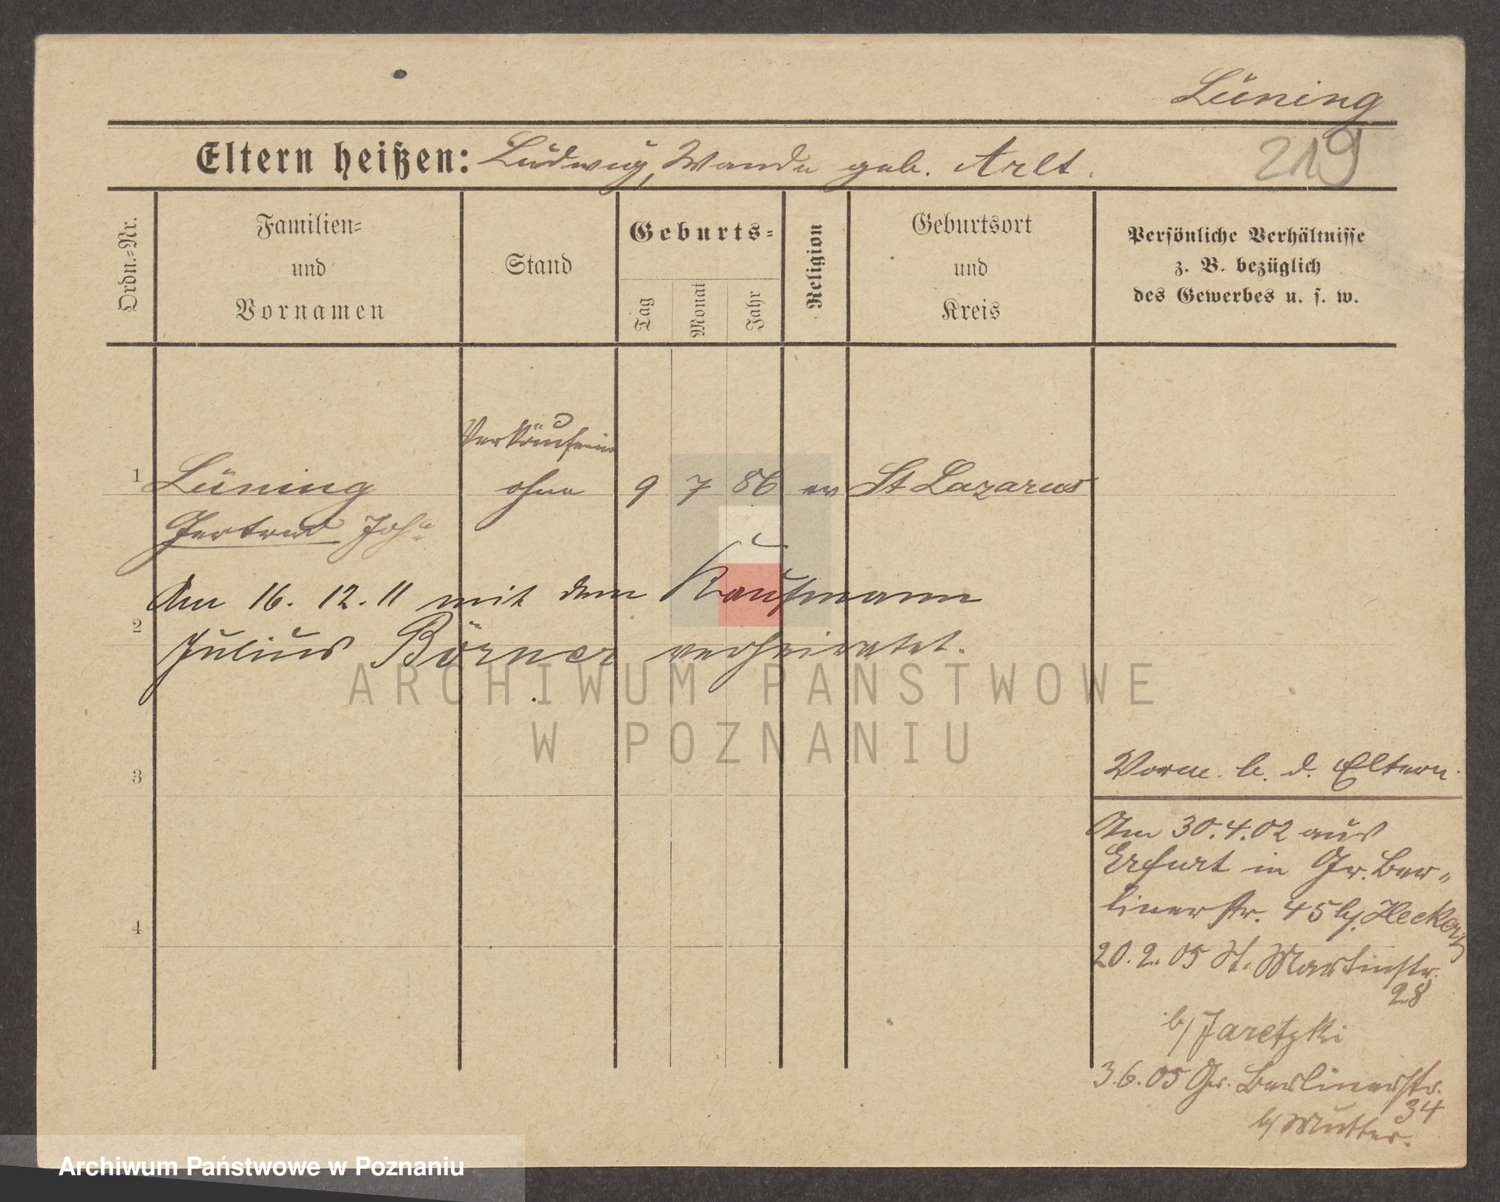 Lüning
219
Eltern heißen: Ludwig, Wanda geb. Arlt.
Ordn.-Nr.
Familien-
und
Vornamen
Stand
Geburts-
Tag
Monat
Jahr
Religion
Geburtsort
und
Kreis
Persönliche Verhältnisse
z. B. bezüglich
des Gewerbes u. s. w.
Verkäuferin
1 Lüning ohne 9 7 86 ev St Lazarus
Gertrud Joh.
Am 16. 12. 11 mit dem Kaufmann
2
Julius Börner verheiratet.
ARCHIWUM PAŃSTWOWE
W POZNANIU
3
4
Vorm. b. d. Eltern.
Am 30.4.02 aus
Erfurt in Gr. Ber-
linerstr. 45 b/
20.2.05 St. Martinstr.
28
b/ Jaretzki
3.6.05 Gr. Berlinerstr.
34
b/ Mutter.
Archiwum Państwowe w Poznaniu